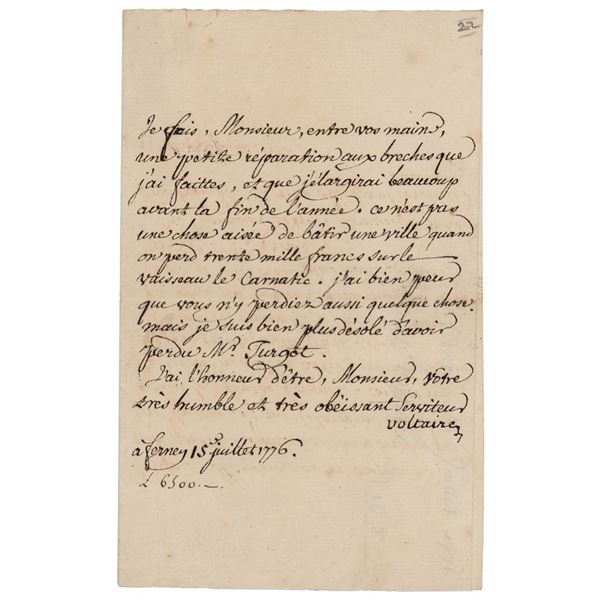 22
Je fais, Monsieur, entre vos mains,
une petite réparation aux breches que
j'ai faittes, et que j'élargirai beaucoup
avant la fin de l'année. ce n'est pas
une chose aisée de bâtir une ville quand
on perd trente mille francs sur le
vaisseau le Carnatic. j'ai bien peur
que vous n'y perdiez aussi quelque chose.
mais je suis bien plus désolé d'avoir
perdu Mr. Turgot.
J'ai l'honneur d'être, Monsieur, vôtre
très humble et très obéissant Serviteur
voltaire
à ferney 15e juillet 1776.
£ 6500.—